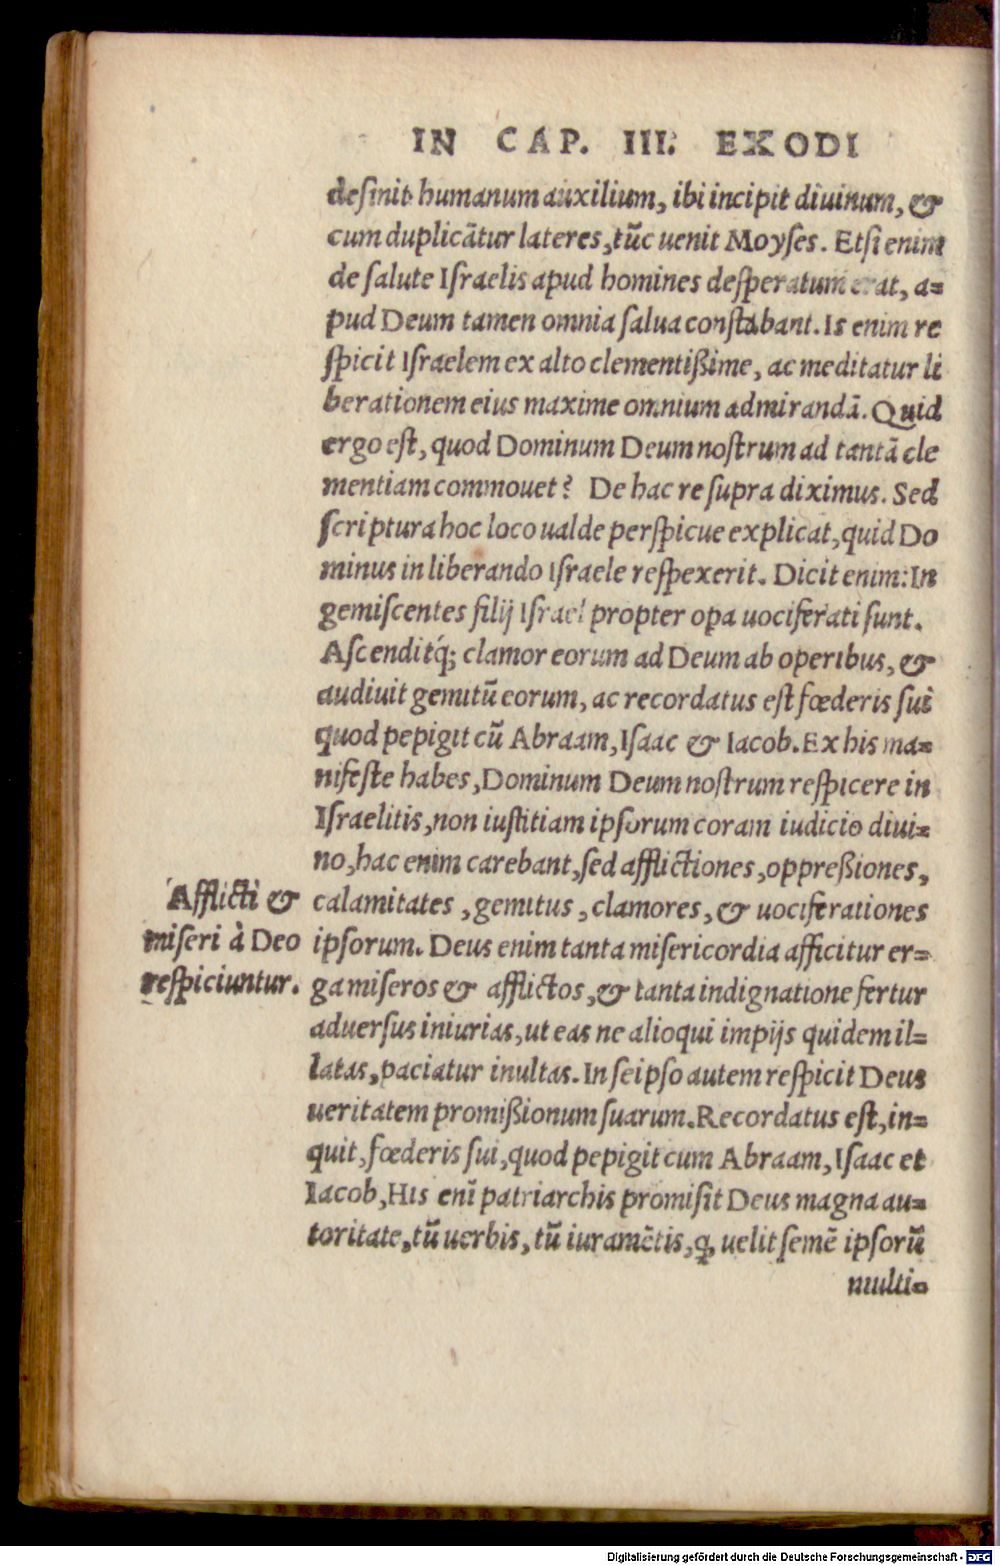 IN CAP. III. EXODI
desinit humanum auxilium, ibi incipit diuinum, &
cum duplicātur lateres, tūc uenit Moyses. Etsi enim
de salute Israelis apud homines desperatum erat, a=
pud Deum tamen omnia salua constabant. Is enim re
spicit Israelem ex alto clementißime, ac meditatur li
berationem eius maxime omnium admirandā. Quid
ergo est, quod Dominum Deum nostrum ad tantā cle
mentiam commouet? De hac re supra diximus. Sed
scriptura hoc loco ualde perspicue explicat, quid Do
minus in liberando Israele respexerit. Dicit enim: In
gemiscentes filij Israel propter opa uociferati sunt.
Ascenditq́; clamor eorum ad Deum ab operibus, &
audiuit gemitū eorum, ac recordatus est fœderis sui
quod pepigit cū Abraam, Isaac & Iacob. Ex his ma=
nifeste habes, Dominum Deum nostrum respicere in
Israelitis, non iustitiam ipsorum coram iudicio diui=
no, hac enim carebant, sed afflictiones, oppreßiones,
calamitates, gemitus, clamores, & uociferationes
ipsorum. Deus enim tanta misericordia afficitur er=
ga miseros & afflictos, & tanta indignatione fertur
aduersus iniurias, ut eas ne alioqui impijs quidem il=
latas, paciatur inultas. In seipso autem respicit Deus
ueritatem promißionum suarum. Recordatus est, in=
quit, fœderis sui, quod pepigit cum Abraam, Isaac et
Iacob, His enī patriarchis promisit Deus magna au=
toritate, tū uerbis, tū iuramētis, ꝙ uelit semē ipsorū
multi=
Afflicti &
miseri à Deo
respiciuntur.
Digitalisierung gefördert durch die Deutsche Forschungsgemeinschaft - DFG